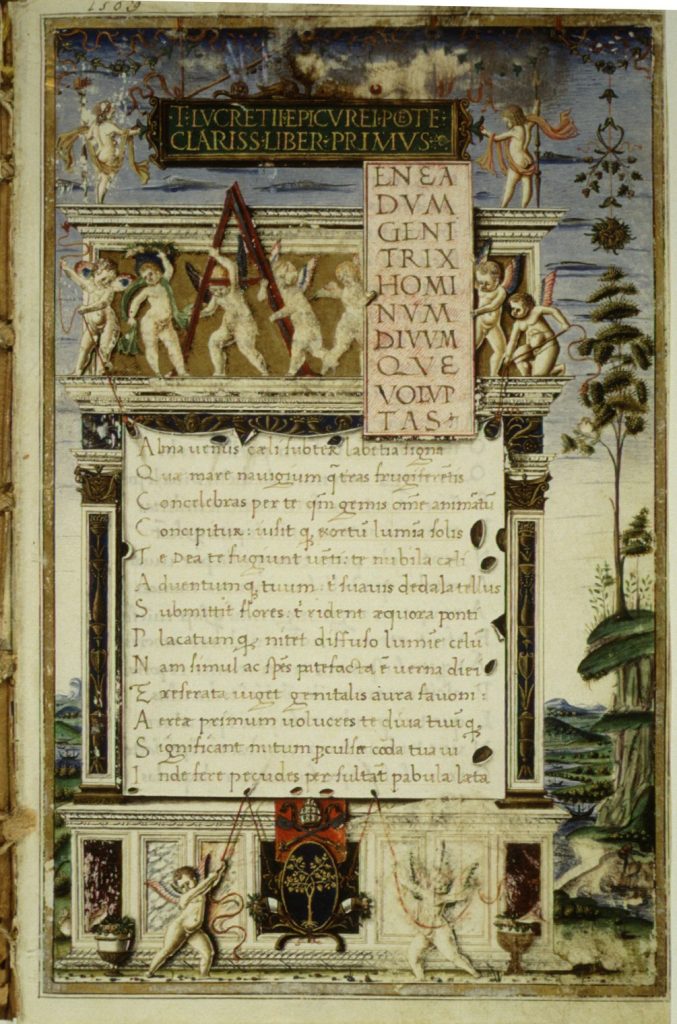 T·LVCRETII·EPICVREI·POETE·
CLARISS·LIBER·PRIMVS·
A
ENEA
DVM
GENI
TRIX
HOMI
NVM
DIVVM
QVE
VOLVP
TAS
Alma venus cæli subter labentia signa
Quæ mare navigium q̄ tras frugiferētis
Concelbras per te qm̄ genus om̄e animātū
Concipitur: uisit q exortū lumīa solis
Te Dea te fugiunt vēti: te nubila cæli
Aduentum q tuum: t̄ suauis dedala tellus
Submittit flores: t̄ rident æquora ponti
Placatum q nitet diffuso lumīe celū
Nam simul ac spēs patefacta ē uerna diei
Exreserata uiget genitalis aura fauoni:
Aereæ primum uolucres te diua tuū q
Significant initum pculsæ corda tua ui
Inde fere pecudes per sultāt pabula læta